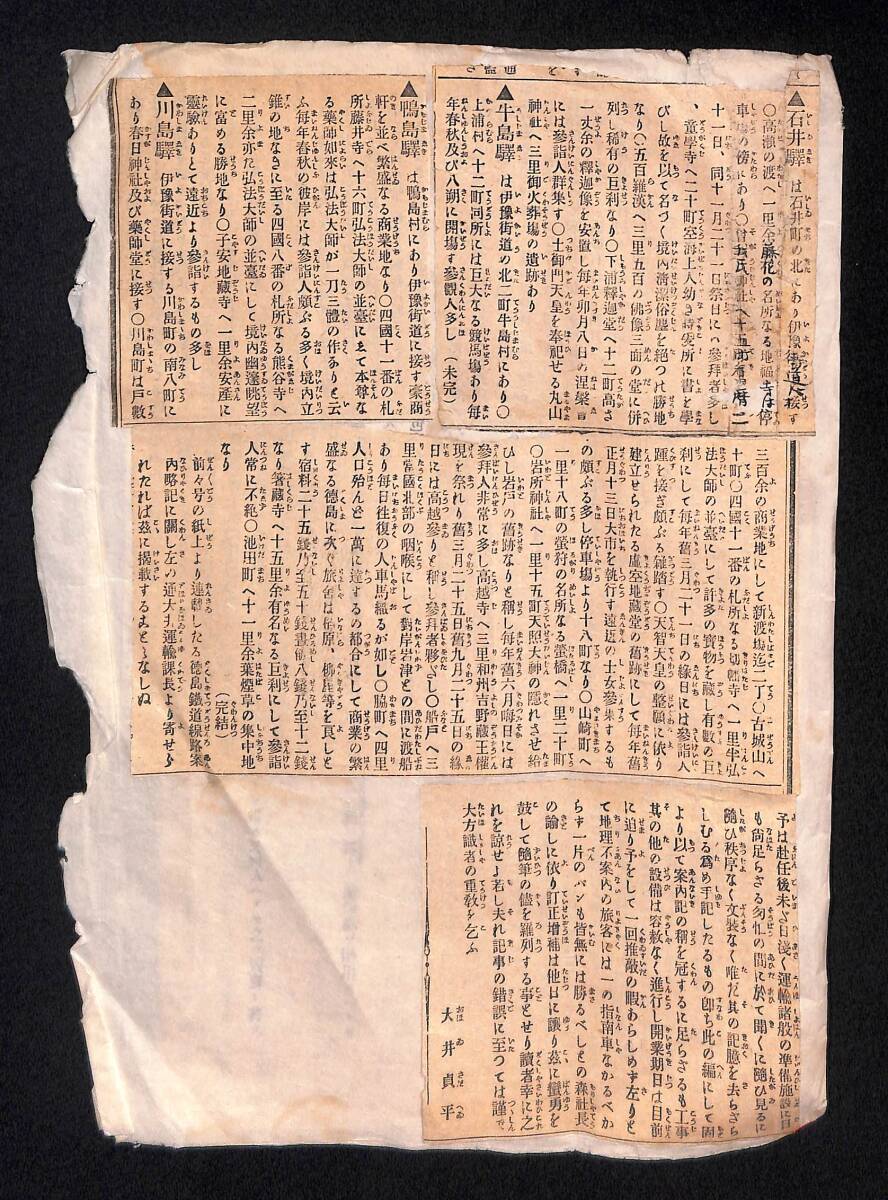 ▲石井驛 は石井町の北にあり伊豫街道に接す
○高瀬の渡へ一里余藤花の名所なる地福寺は停
車場の傍にあり○曾我氏神社へ十五町舊暦二
十一日、同十一月二十一日祭日には參拜者多し
、童學寺へ二十町空海上人幼き時安所に書を學
びし故を以て名づく境内清潔俗塵を絶つの勝地
なり○五百羅漢へ三里五百の佛像三面の堂に併
列し稀有の巨刹なり○下浦釋迦堂へ十二町高さ
一丈余の釋迦像を安置し毎年卯月八日の涅槃會
には參詣人群集す○土御門天皇を奉祀せる丸山
神社へ三里御火葬塲の遺跡あり
▲牛島驛 は伊豫街道の北二町牛島村にあり○
上浦村へ十二町同所には巨大なる競馬塲あり毎
年春秋及び八朔に開塲す參觀人多し (未完)
▲鴨島驛 は鴨島村にあり伊豫街道に接す豪商
軒を並べ繁盛なる商業地なり○四國十一番の札
所藤井寺へ十六町弘法大師の並臺にして本尊な
る藥師如來は弘法大師が一刀三體の作ありと云
ふ毎年春秋の彼岸には參詣人頗ぶる多く境内立
錐の地なきに至る四國八番の札所なる熊谷寺へ
二里余亦た弘法大師の並臺にして境内幽邃眺望
に富める勝地なり○子安地藏寺へ一里余安産に
靈驗ありとて遠近より參詣するもの多し
▲川島驛 伊豫街道に接する川島町の南八町に
あり春日神社及び藥師堂に接す○川島町は戸數
三百余の商業地にして新渡塲迄二丁○古城山へ
十町○四國十一番の札所なる切幡寺へ一里半弘
法大師の並臺にして許多の寳物を藏し有數の巨
刹にして毎年舊三月二十一日の緣日には參詣人
踵を接ぎ頗ぶる雜踏す○天智天皇の整願に依り
建立せられたる虚空地藏堂の舊跡にして毎年舊
正月十三日大市を執行す遠近の士女參集するも
の頗ぶる多し停車塲より十八町なり○山崎町へ
一里十八町の螢狩の名所なる螢橋へ一里二十町
○岩所神社へ一里十五町天照大神の隱れさせ給
ひし岩戸の舊跡なりと稱し毎年舊六月晦日には
參拜人非常に多し高越寺へ三里和州吉野藏王權
現を祭れり舊三月二十五日舊九月二十五日の緣
日には高越參りと稱し參拜者夥ぎし○船戸へ三
里當國北部の咽喉にして對岸岩津との間に渡船
あり毎日往復の人車馬織るが如し○脇町へ四里
人口殆んと一萬に達するの都合にして商業の繁
盛なる德島に次ぐ旅舍は稻原、柳屋等を良しと
す宿料二十五錢乃至五十錢晝飯八錢乃至十二錢
なり箸藏寺へ十五里余有名なる巨刹にして參詣
人常に不絶○池田町へ十一里余葉煙草の集中地
なり (完結)
前々号の紙上より連載したる德島鐵道線路案
内略記に關し左の通大井運輸課長より寄せら
れたれば茲に揭載するまとゝなしぬ
予は赴任後未さ日淺く運輸諸般の準備施設に日
も尚足らさる匆忙の間に於て聞くに隨ひ見るに
隨ひ秩序なく文裝なく唯だ其の記臆を去らざら
しむる爲め手記したるもの卽ち此の編にして固
より以て案内記の稱を冠するに足らさるも工事
其の他の設備は容赦なく進行し開業期日は目前
に迫り予をして一回推敲の暇あらしめす左りと
て地理不案内の旅客には一の指南車なかるべか
らす一片のパンも皆無には勝るべしとの森社長
の諭しに依り訂正增補は他日に讓り茲に蠻勇を
鼓して隨筆の儘を羅列する事とせり讀者幸に之
れを諒せよ若し夫れ記事の錯誤に至つては謹で
大方識者の重敎を乞ふ
大井貞平